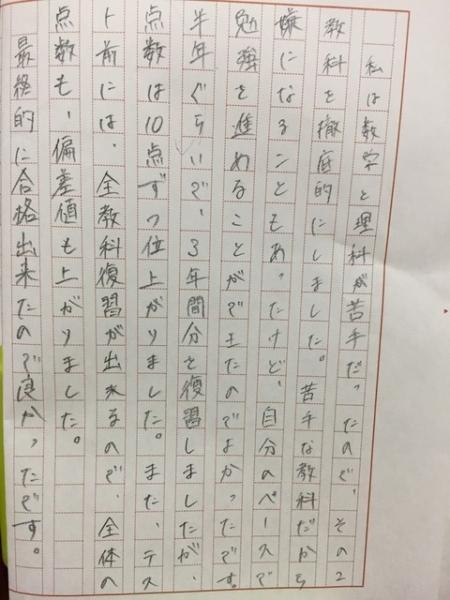 私は数学と理科が苦手だったので、その2
教科を徹底的にしました。苦手な教科だから
嫌になることもあったけど、自分のペースで
勉強を進めることができたのでよかったです。
半年ぐらいで、3年間分を復習しましたが、
点数は10点ずつ位上がりました。また、テス
ト前には、全教科復習が出来るので、全体の
点数も、偏差値も上がりました。
最終的に合格出来たので良かったです。